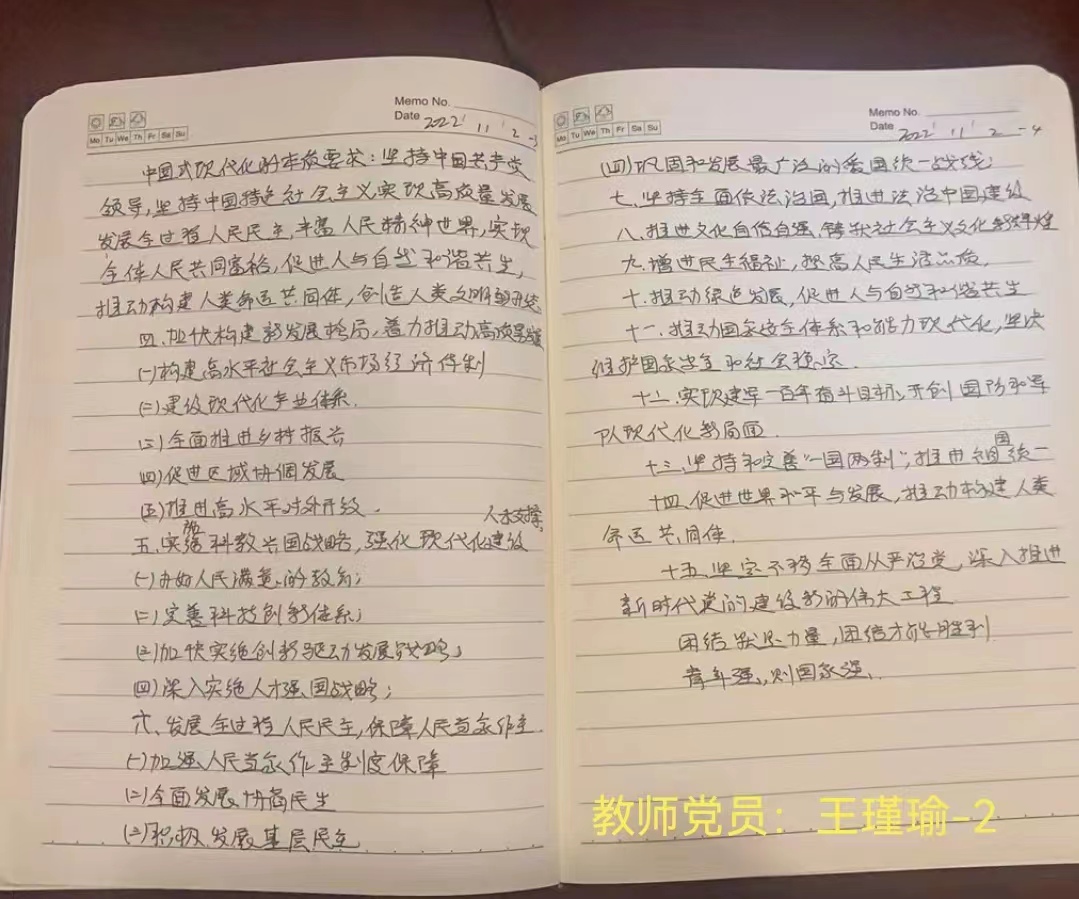 Memo No.
Date 2022 11 2 -3
Mo Tu We Th Fr Sa Su
中国式现代化的本质要求：坚持中国共产党
领导，坚持中国特色社会主义，实现高质量发展
发展全过程人民民主，丰富人民精神世界，实现
全体人民共同富裕，促进人与自然和谐共生，
推动构建人类命运共同体，创造人类文明新形态
四、加快构建新发展格局，着力推动高质量发展
(一)构建高水平社会主义市场经济体制
(二)建设现代化产业体系．
(三)全面推进乡村振兴
(四)促进区域协调发展
(五)推进高水平对外开放．
人才支撑，
五、实施科教兴国战略，强化现代化建设
(一)办好人民满意的教育；
(二)完善科技创新体系；
(三)加快实施创新驱动发展战略；
(四)深入实施人才强国战略；
六、发展全过程人民民主，保障人民当家作主．
(一)加强人民当家作主制度保障
(二)全面发展协商民生
(三)积极发展基层民主
Memo No.
Date 2022 11 2 -4
Mo Tu We Th Fr Sa Su
(四)巩固和发展最广泛的爱国统一战线；
七、坚持全面依法治国，推进法治中国建设
八、推进文化自信自强，铸就社会主义文化新辉煌
九、增进民生福祉，提高人民生活品质．
十、推动绿色发展，促进人与自然和谐共生
十一、推动国家安全体系和能力现代化，坚决
维护国家安全和社会稳定．
十二、实现建军一百年奋斗目标，开创国防和军
队现代化新局面．
十三、坚持和完善“一国两制”，推进祖国统一
十四、促进世界和平与发展，推动构建人类
命运共同体．
十五、坚定不移全面从严治党，深入推进
新时代党的建设新的伟大工程
团结就是力量，团结才能胜利
青年强，则国家强．
教师党员：王瑾瑜-2